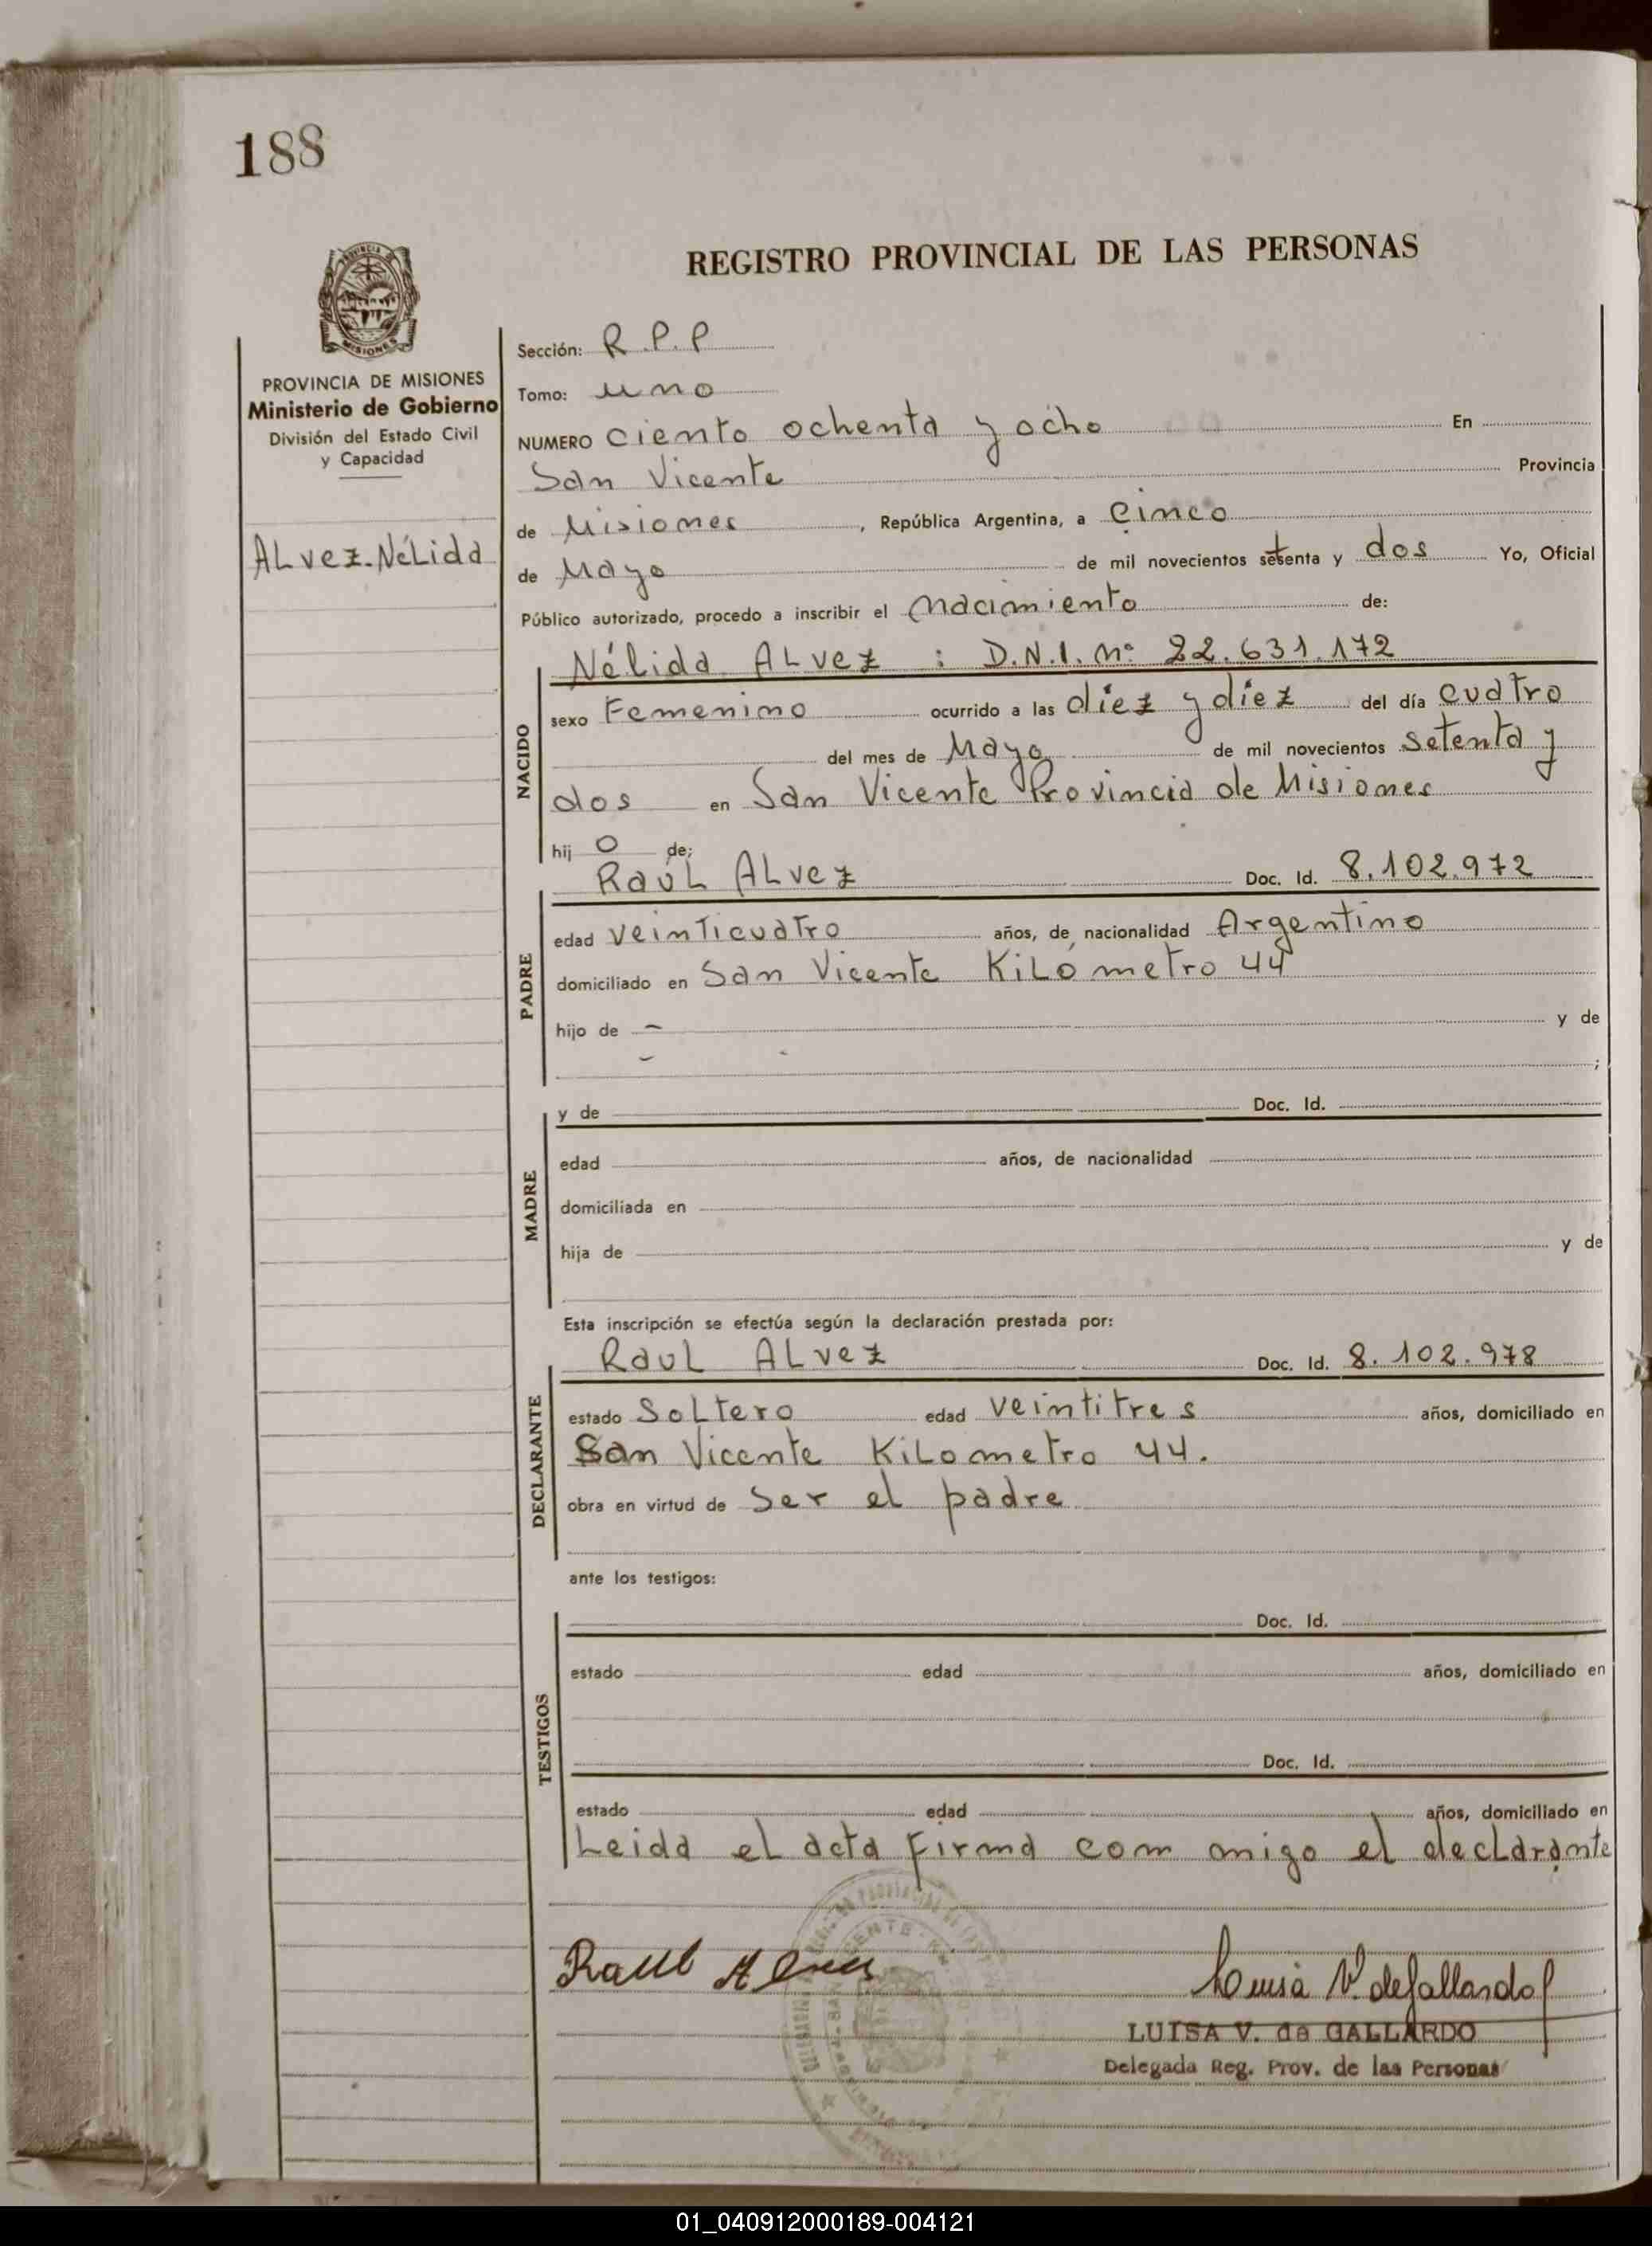 188
REGISTRO PROVINCIAL DE LAS PERSONAS
PROVINCIA DE MISIONES
Ministerio de Gobierno
División del Estado Civil
y Capacidad
ALvez. NéLida
Sección: R.P.P
Tomo: uno
NUMERO ciento ochenta y ocho En
San Vicente Provincia
de Misiones, República Argentina, a Cinco
de Mayo de mil novecientos setenta y dos Yo, Oficial
Público autorizado, procedo a inscribir el nacimiento de:
Nélida ALvez : D.N.I. Nº 22.631.172
NACIDO
sexo Femenino ocurrido a las diez y diez del día cuatro
del mes de Mayo de mil novecientos setenta y
dos en San Vicente Provincia de Misiones
hij o de;
RaúL ALvez Doc. Id. 8.102.972
PADRE
edad veinticuatro años, de nacionalidad Argentino
domiciliado en San Vicente KiLómetro 44
hijo de - y de
- ;
MADRE
y de Doc. Id.
edad años, de nacionalidad
domiciliada en
hija de y de
Esta inscripción se efectúa según la declaración prestada por:
RauL ALvez Doc. Id. 8.102.978
DECLARANTE
estado SoLtero edad veintitres años, domiciliado en
San Vicente KiLometro 44.
obra en virtud de ser el padre
ante los testigos:
TESTIGOS
Doc. Id.
estado edad años, domiciliado en
Doc. Id.
estado edad años, domiciliado en
Leida el acta firma com migo el decLarante
Raul
Luisa V. de Gallardo
LUISA V. de GALLARDO
Delegada Reg. Prov. de las Personas
01_040912000189-004121